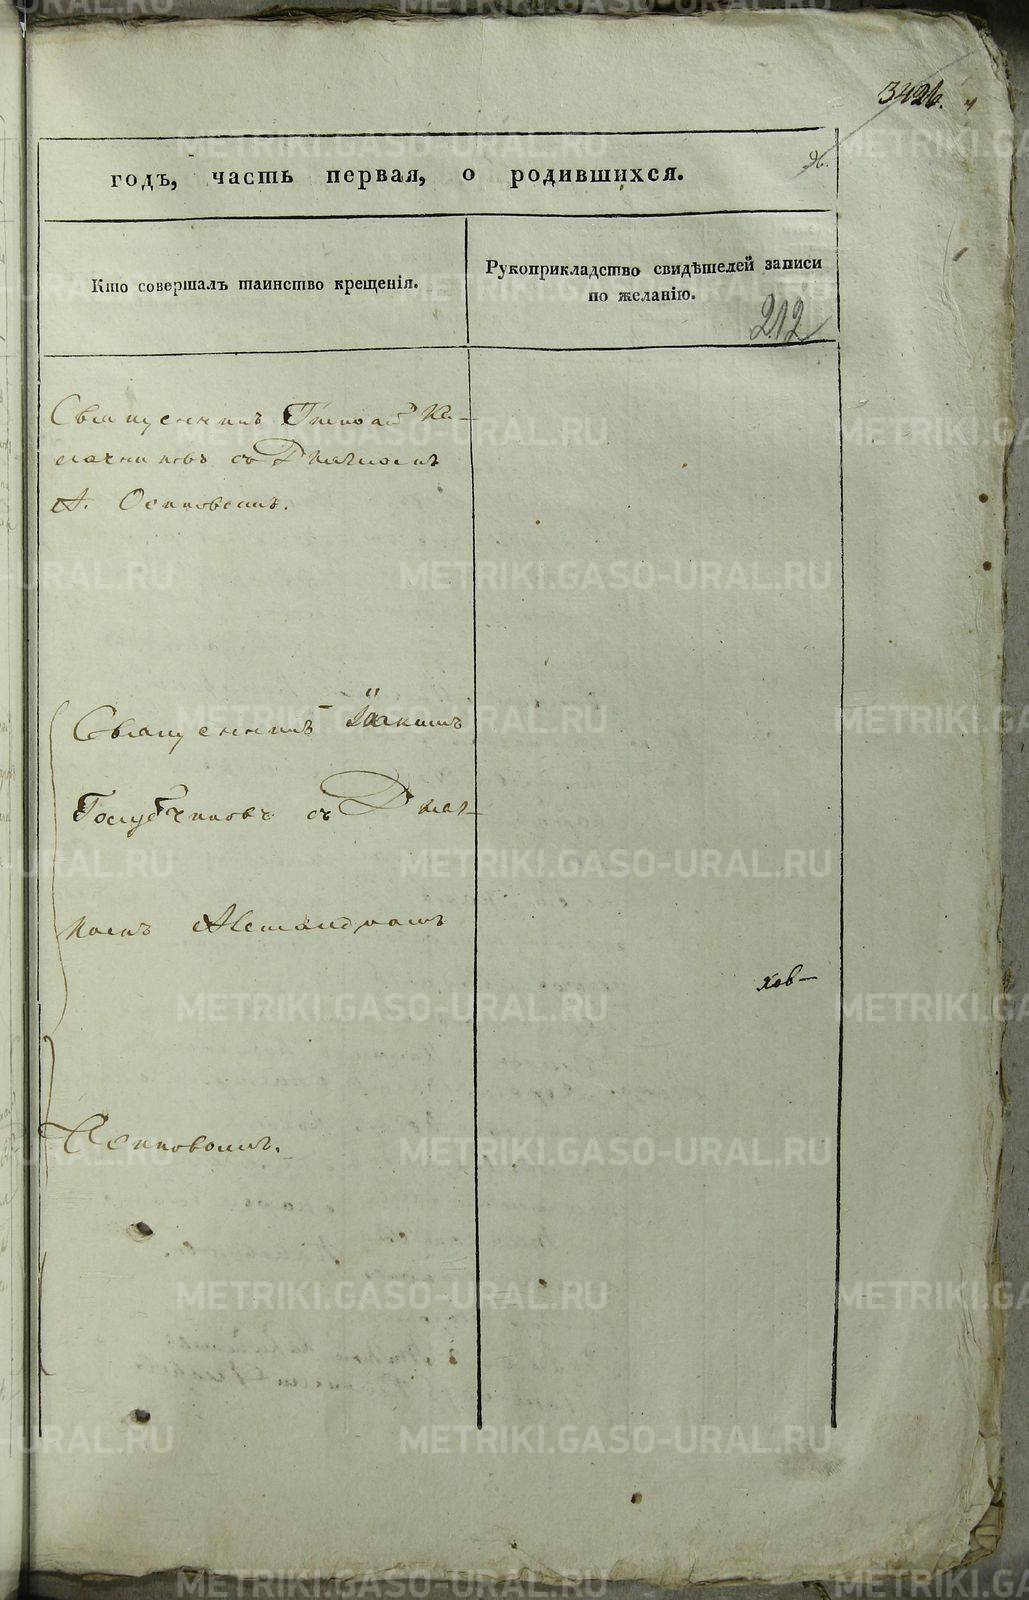 3426.
годъ, часть первая, о родившихся.
Кто совершалъ таинство крещенія.
Рукоприкладство свидѣтелей записи
по желанію.
212
Священникъ
съ Діакономъ
А. Осиповымъ.
Священникъ Іоакимъ
Голубчиковъ съ Діа-
кономъ Александромъ
хов-
Осиповымъ.
METRIKI.GASO-URAL.RU